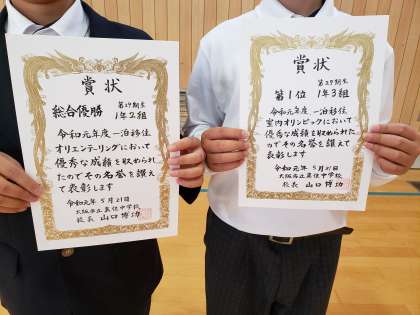 賞状
第39期生
総合優勝 1年2組
令和元年度 一泊移住
オリエンテーリングにおいて
優秀な成績を収められ
たのでその名誉を讃え
て表彰します
令和元年5月21日
大阪市立真住中学校
校長 山口博功
賞状
第39期生
第1位 1年3組
令和元年度 一泊移住
室内オリンピックにおいて
優秀な成績を収められた
のでその名誉を讃えて
表彰します
令和元年5月21日
大阪市立真住中学校
校長 山口博功